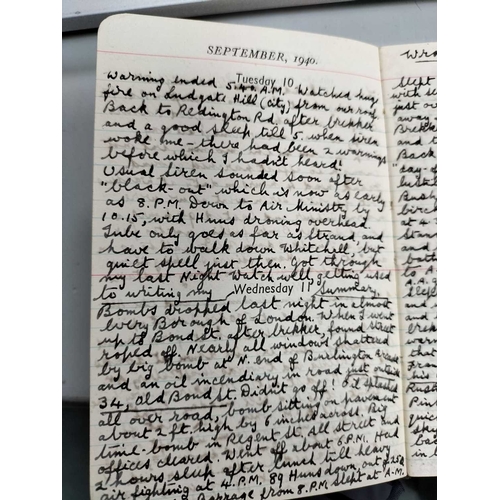 SEPTEMBER, 1940.
Tuesday 10
Warning ended 5.40 A.M. Watched huge
fire on Ludgate Hill (City) from our roof.
Back to Redington Rd. after brekker
and a good sleep till 5, when siren
woke me – there had been 2 warnings
before which I hadn't heard!
Usual siren sounded soon after
"black-out" which is now as early
as 8. P.M. Down to Air Ministry by
10.15, with Huns droning overhead.
Tube only goes as far as Strand, and
have to walk down Whitehall, but
quiet spell just then. Got through
my last Night Watch well getting used
to writing my Summary.
Wednesday 11
Bombs dropped last night in almost
every Borough of London. When I went
up to Bond St. after brekker, found street
roped off. Nearly all windows shattered
by big bomb at N. end of Burlington Arcade
and an oil incendiary in road just outside
34, old Bond St. Didn't go off! Oil splashed
all over road, bomb sitting on pavement
about 2 ft. high by 6 inches across. Big
time-bomb in Regent St. All street and
offices cleared. Went off about 6 P.M. Had
2 hours sleep after lunch till heavy
air fighting at 4. P.M. 89 Huns down, out of 250
barrage from 8. P.M. Slept at A.M.
Slept
with se
just ov
away
Brekk
and t
Back
"day-o